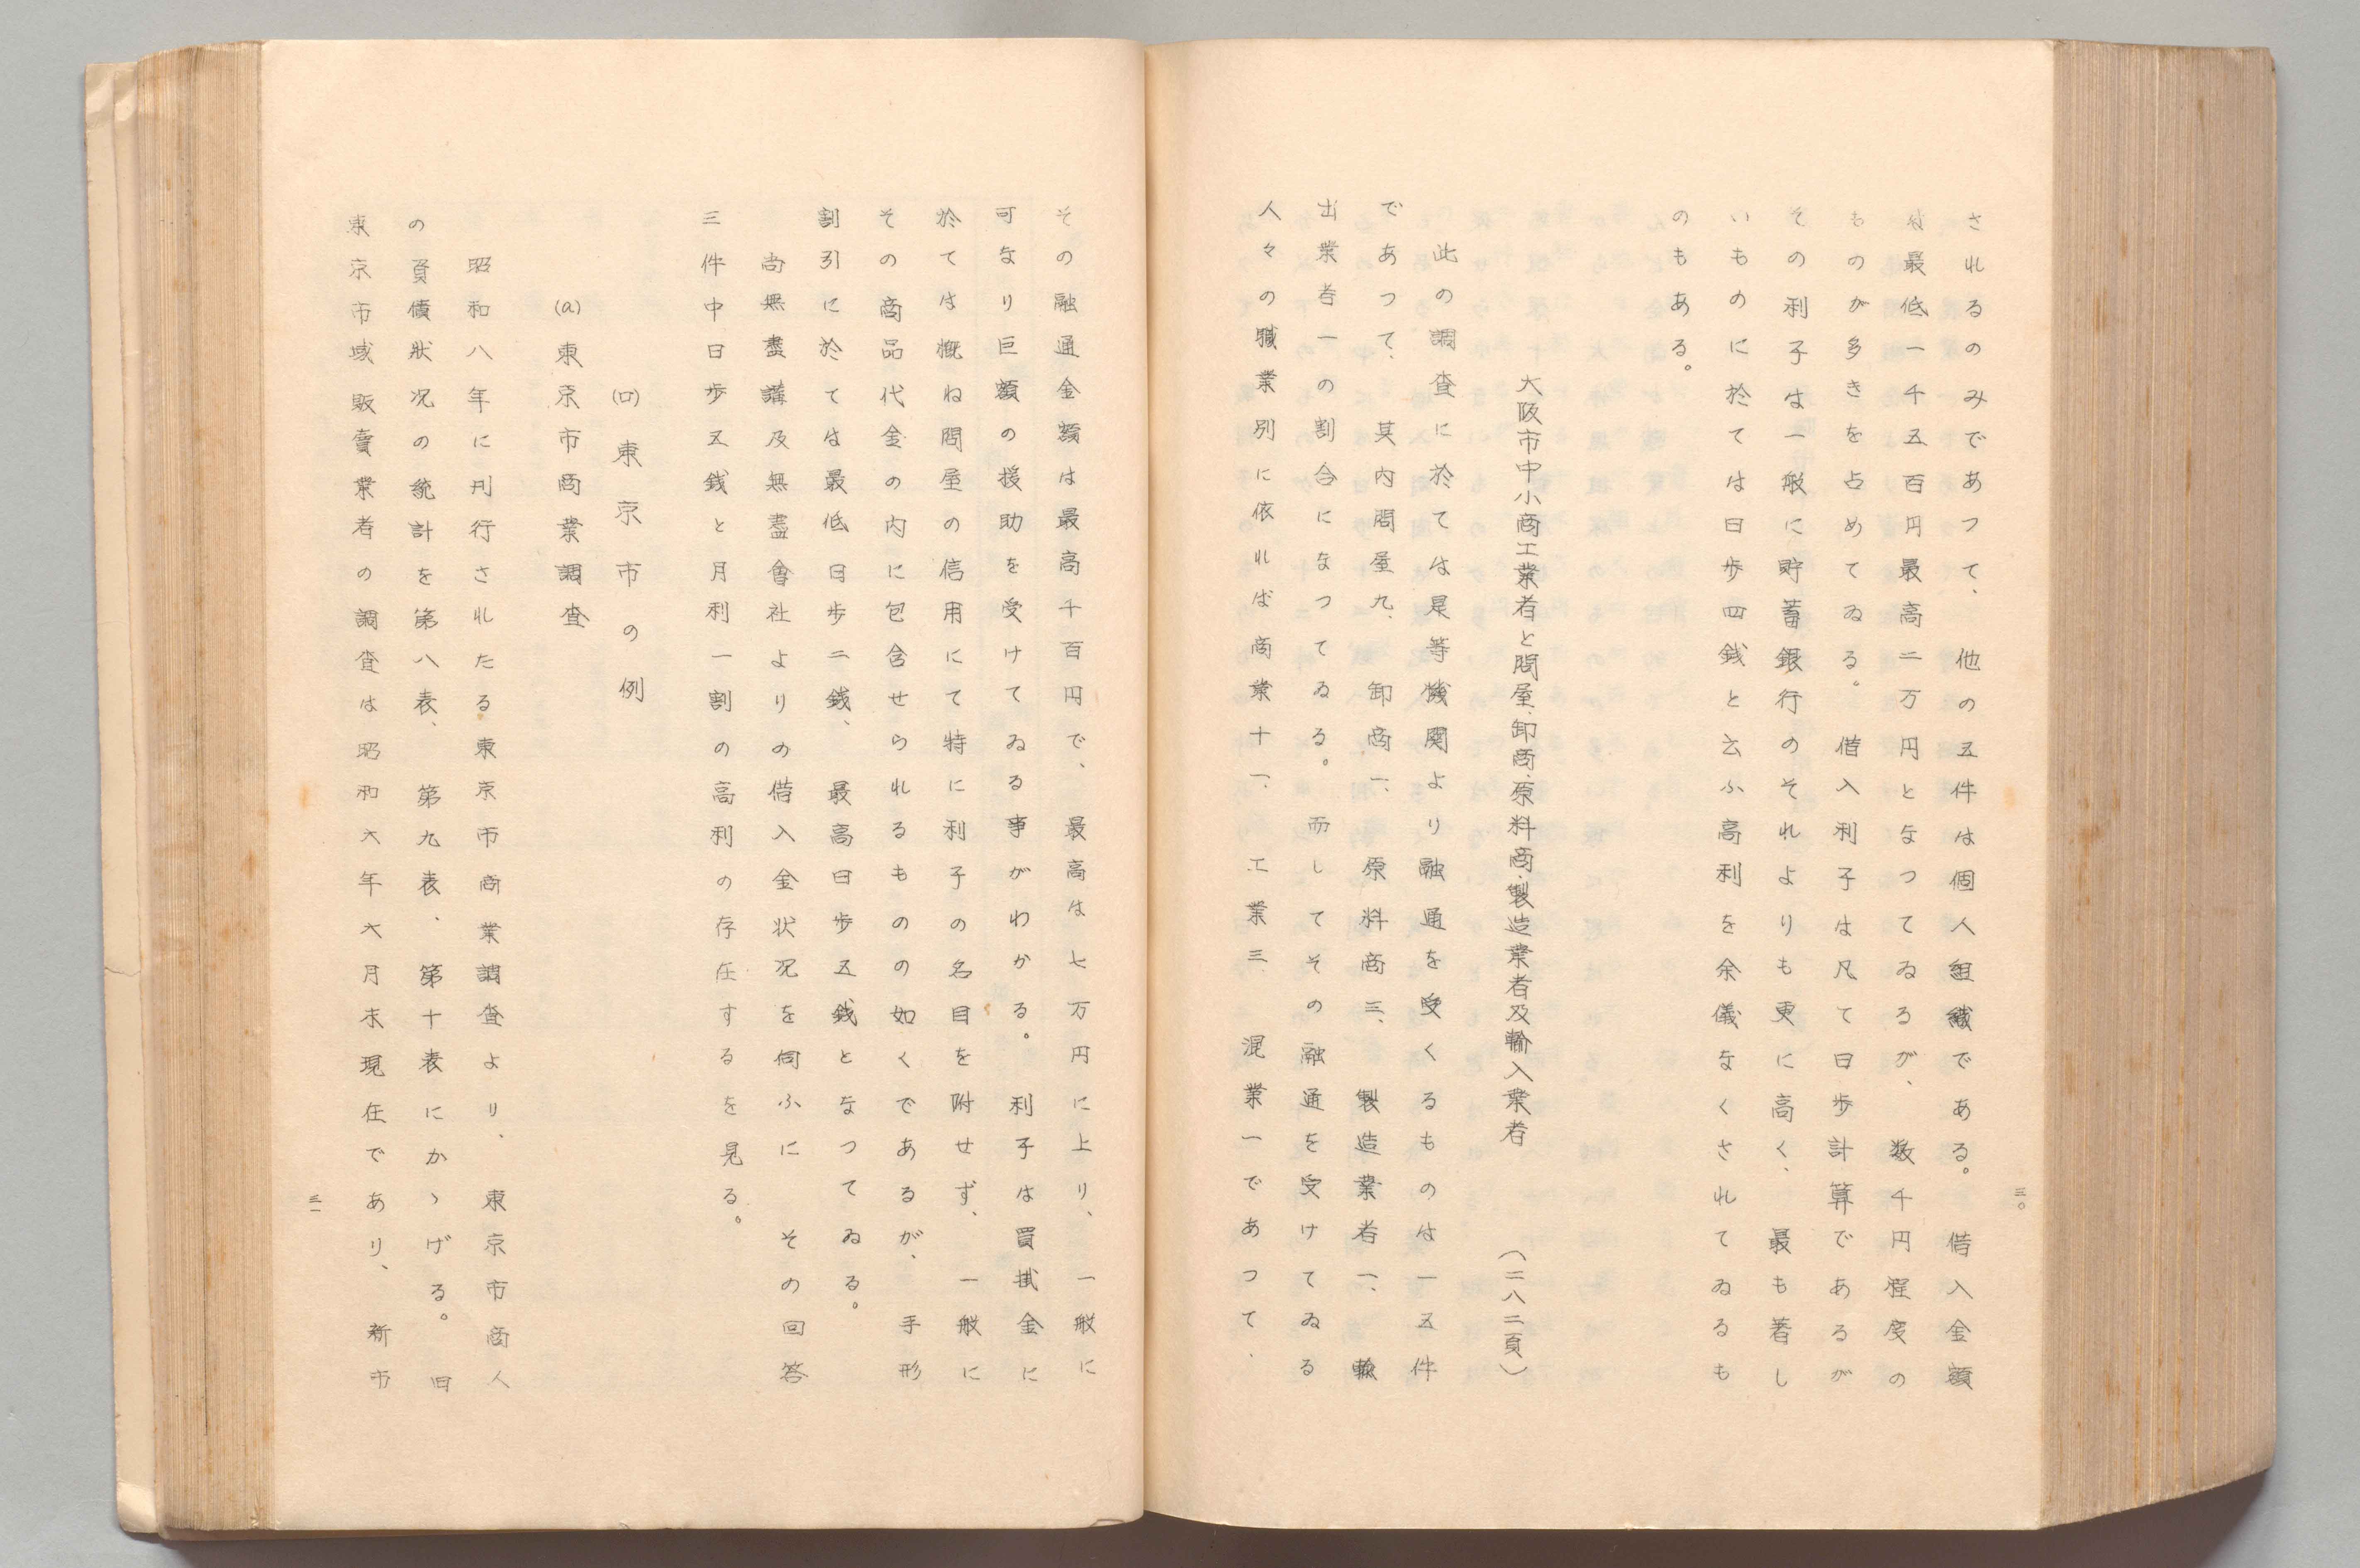 されるのみであつて、他の五件は個人組織である。借入金額
は最低一千五百円最高二万円となつてゐるが、数千円程度の
ものが多きを占めてゐる。借入利子は凡て日歩計算であるが
その利子は一般に貯蓄銀行のそれよりも更に高く、最も著し
いものに於ては日歩四銭と云ふ高利を余儀なくされてゐるも
のもある。
大阪市中小商工業者と問屋、卸商、原料商、製造業者及輸入業者 （二八二頁）
此の調査に於ては是等機関より融通を受くるものは一五件
であつて、其内問屋九、卸商一、原料商三、製造業者一、輸
出業者一の割合になつてゐる。而してその融通を受けてゐる
人々の職業別に依れば商業十一、工業三、混業一であつて、
三〇
その融通金額は最高千百円で、最高は七万円に上り、一般に
可なり巨額の援助を受けてゐる事がわかる。利子は買掛金に
於ては概ね問屋の信用にて特に利子の名目を附せず、一般に
その商品代金の内に包含せられるものの如くであるが、手形
割引に於ては最低日歩二銭、最高日歩五銭となつてゐる。
尚無盡講及無盡會社よりの借入金状况を伺ふに その回答
三件中日歩五銭と月利一割の高利の存在するを見る。
(ロ) 東京市の例
(a) 東京市商業調査
昭和八年に刊行されたる東京市商業調査より、東京市商人
の負債狀况の統計を第八表、第九表、第十表にかゝげる。旧
東京市域販賣業者の調査は昭和六年六月末現在であり、新市
三一